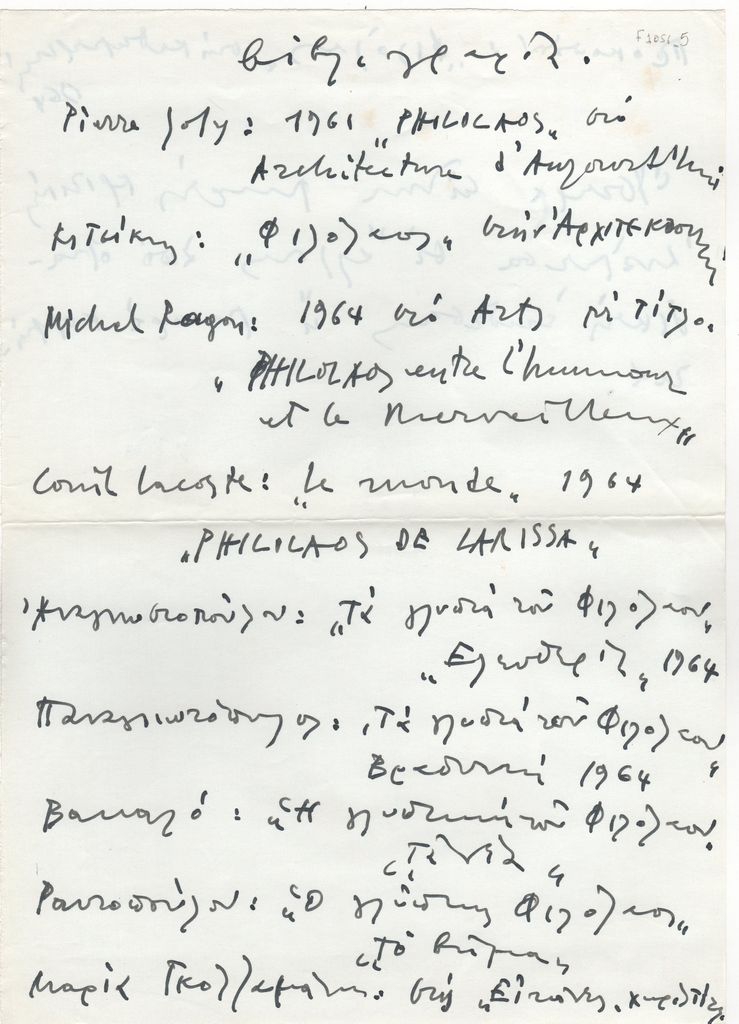 βιβλιογραφία.
Pierre Joly: 1961 "PHILOLAOS" στό
Architecture d'Aujourd'hui
"Φιλόλαος" στήν Ἀρχιτεκτονική
Michel Ragon: 1964 στό Arts μέ τίτλο.
"PHILOLAOS entre l'humour
et le merveilleux"
Conil Lacoste: "le monde" 1964
"PHILOLAOS DE LARISSA"
Ἀναγνωστοπούλου: "Τά γλυπτά τοῦ Φιλόλαου"
"Ἐλευθερία" 1964
Παναγιωτόπουλος: "Τά γλυπτά τοῦ Φιλόλαου"
Βραδυνή 1964
Βακαλό: "Ἡ γλυπτική τοῦ Φιλόλαου.
"Τά Νέα"
Ραυτοπούλου: "Ὁ γλύπτης Φιλόλαος"
"Τό Βῆμα"
Μαρία στίς "Εἰκόνες"